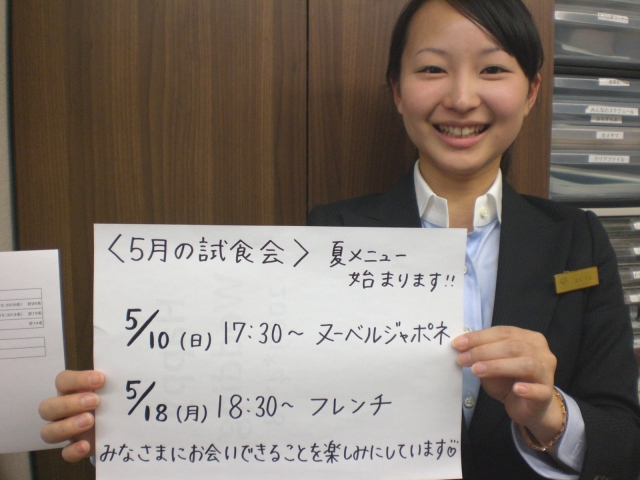 〈5月の試食会〉 夏メニュー
始まります!!
5/10(日) 17:30~ ヌーベルジャポネ
5/18(月) 18:30~ フレンチ
みなさまにお会いできることを楽しみにしています♡